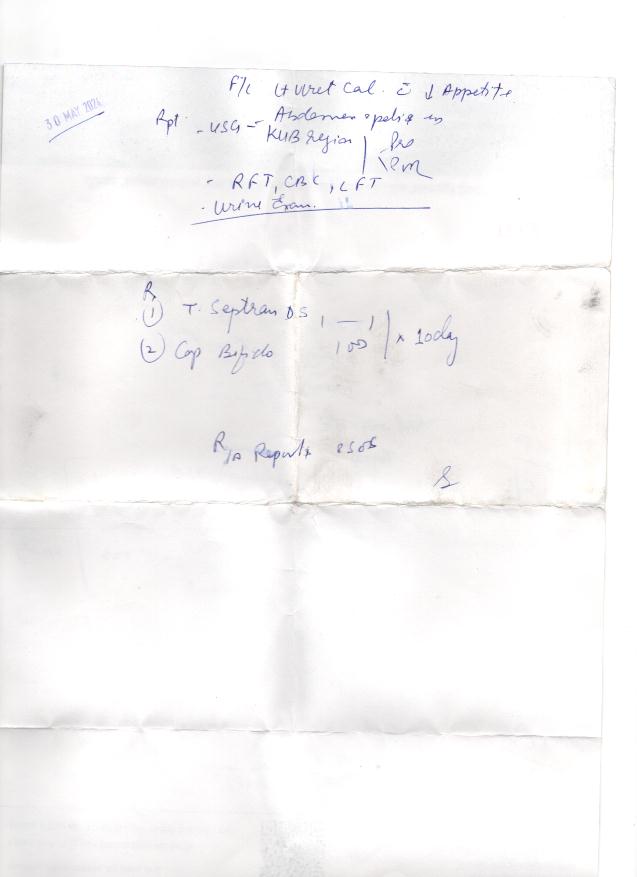 30 MAY 2024
F/c Lt Uret Cal. c̄ ↓ Appetite
Rpt. - USG - Abdomen + pelvis
KUB region
Pre
- RFT, CBC, LFT
- Urine Exam.
R
① T. Septran DS 1 — 1
② Cap Bifido 1 OD
x 10day
Reports SOS